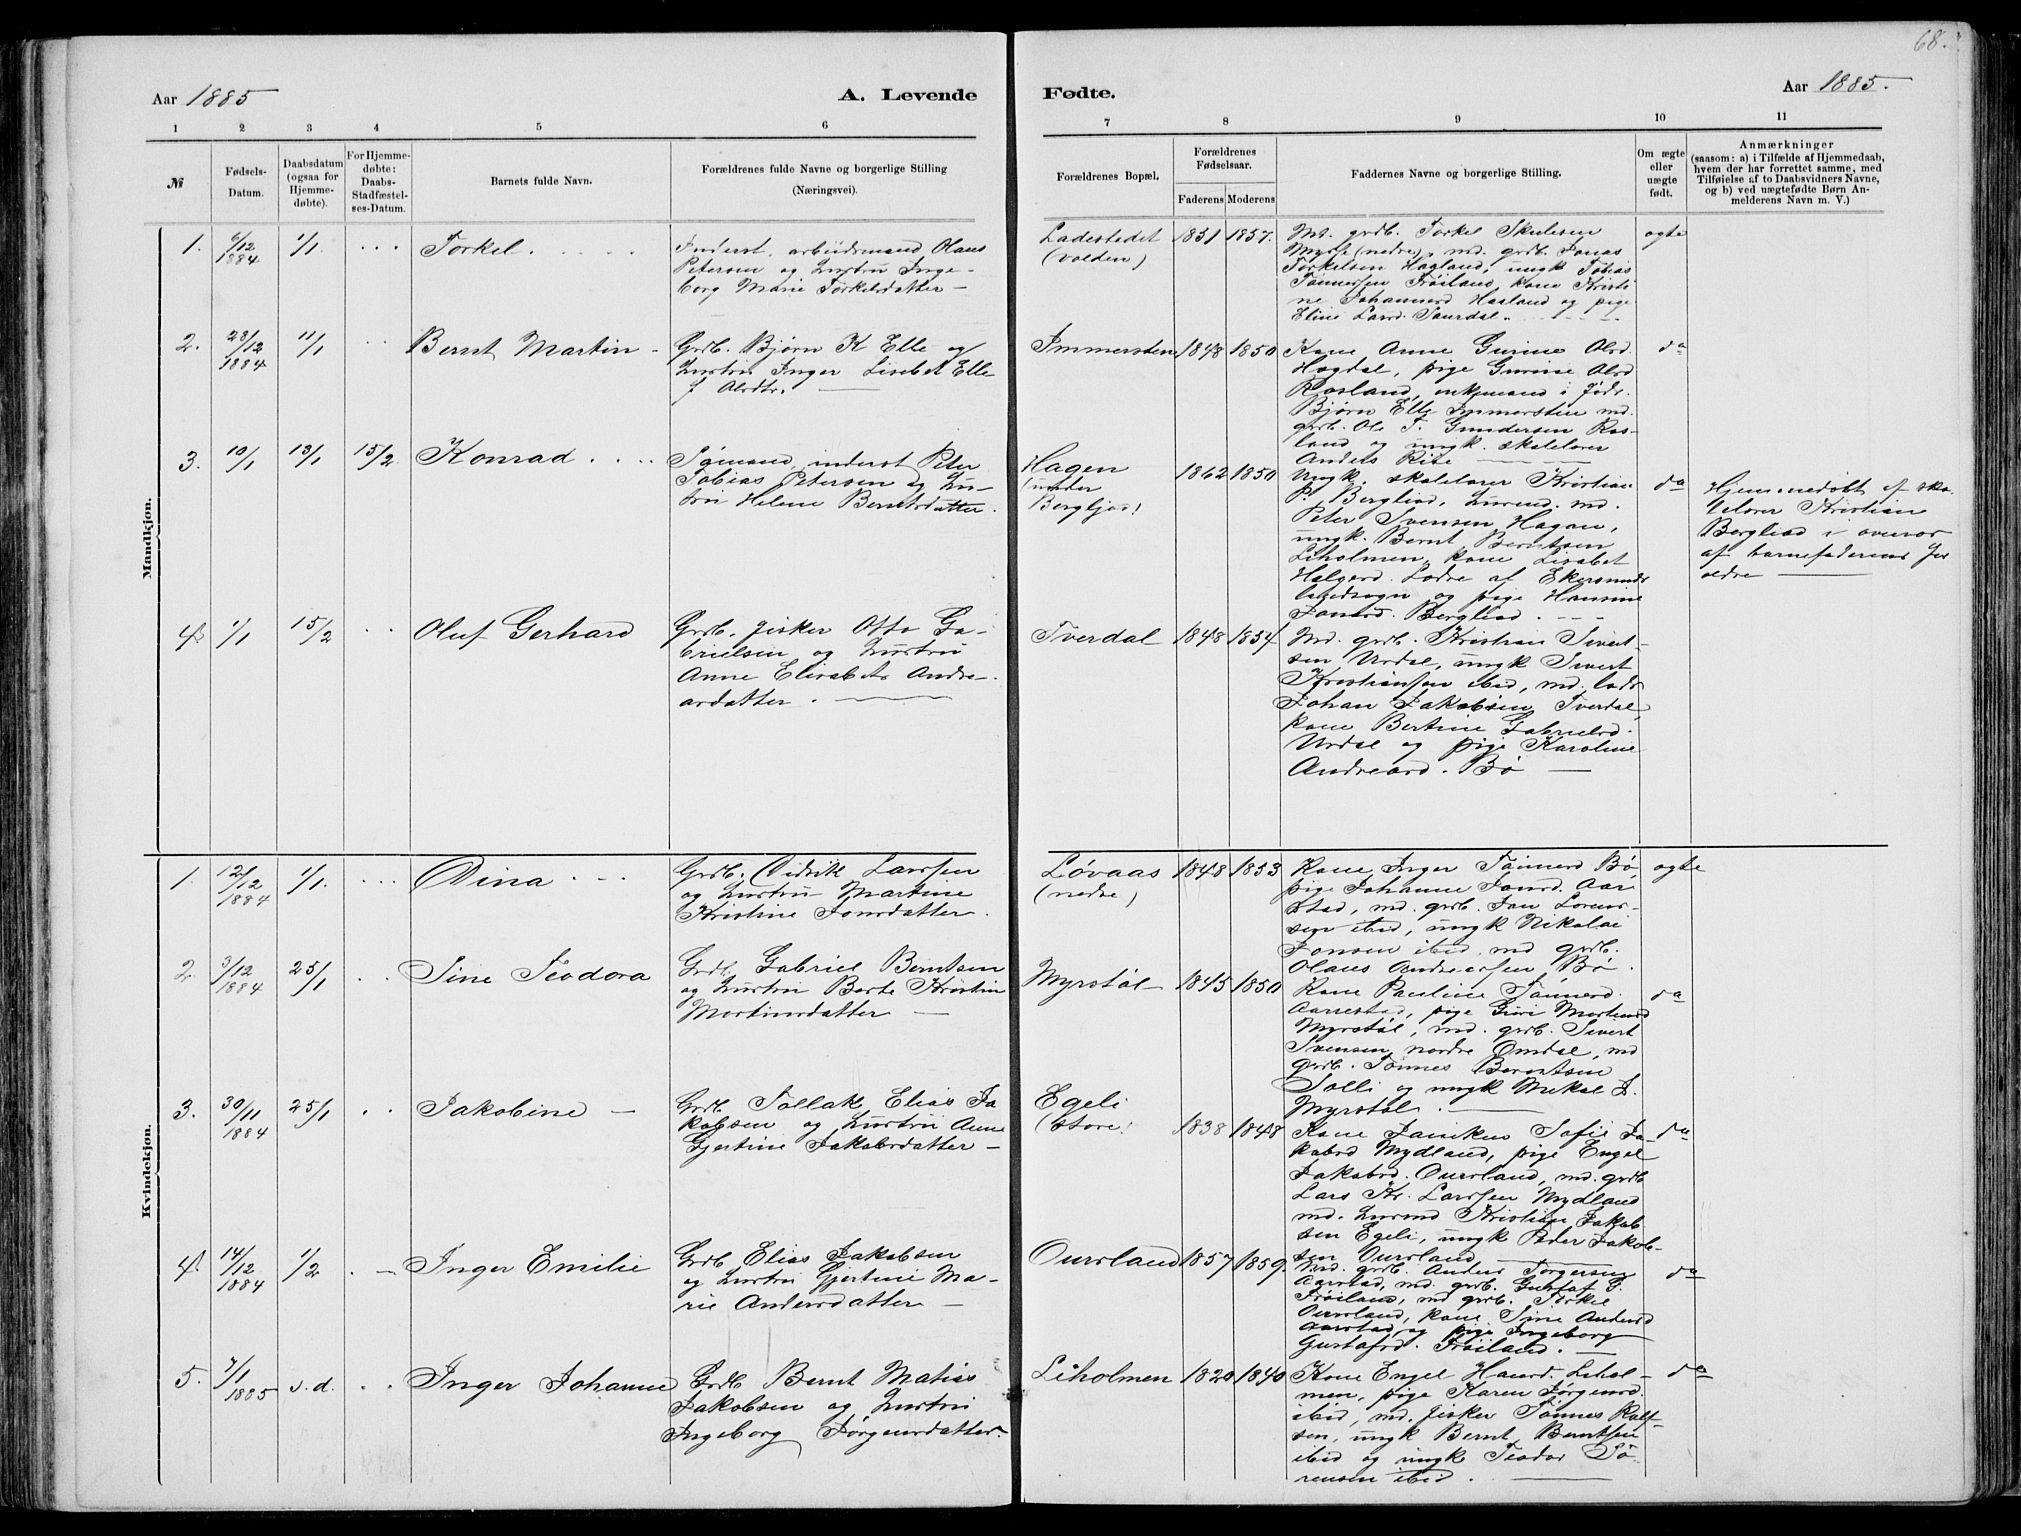 68.
Aar 1885
A. Levende
Fødte.
Aar 1885.
1 2 3 4 5 6
7 8 9 10 11
№
Fødsels-
Datum.
Daabsdatum
(ogsaa for
Hjemme-
døbte).
For Hjemme-
døbte:
Daabs-
Stadfæstel-
ses-Datum.
Barnets fulde Navn.
Forældrenes fulde Navne og borgerlige Stilling
(Næringsvei).
Forældrenes Bopæl.
Forældrenes
Fødselsaar.
Faderens
Moderens
Faddernes Navne og borgerlige Stilling.
Om ægte
eller
uægte
født.
Anmærkninger
(saasom: a) i Tilfælde af Hjemmedaab,
hvem der har forrettet samme, med
Tilføielse af to Daabsvidners Navne,
og b) ved uægtefødte Børn An-
melderens Navn m. V.)
Mandkjøn.
1. 6/12 1884 1/1. Torkel.
Inderst, arbeidsmand Olaus
Petersen og hustru Inge-
borg Marie Torkelsdatter —
Ladestedet
(volden)
1851 1857.
Md. grdb. Torkel Skulesen
Myrse (nedre), md. grdb. Jonas
Torkelsen Hogland, ungk Tobias
Tønnessen Frøiland, kone Kristi-
ne Johannesd Haaland og pige
Eline Larsd. Saurdal.
egte
2. 28/12 1884 11/1 Bernt Martin —
Grdb. Bjørn K Elle og
hustru Inger Lisabet Elle
f Alrdtr. —
Immersten
1848 1850
Kone Anne Gurine Alrd
Hogdal, pige Gurine Alrd
Rosland, enkemand i føder.
Bjørn Elle Immersten md.
grdb. Ole T. Gundersen Ros-
land og ungk. skolelærer
Anders Ribe
do
3. 10/1 13/1 15/2 Konrad
Sømand, inderst Peter
Tobias Petersen og hu-
stru Helene Berntsdatter.
Hagen
(under
Bergljod)
1862 1850
Ungk. skolelærer Kristian
P. Bergliod, husmd. md.
Peter Svensen Hagan,
ungk. Bernt Berntsen
Liholmen, kone Lisabet
Helgesd. Lodre af Ekersunds
landsogn og pige Hansine
Jonasd. Bergliod.
do
Hjemmedøbt af sko-
lelærer Kristian
Bergliod i overvær
af barnefaderens for-
ældre —
4. 1/1 15/2 Oluf Gerhard
Grdb. fisker Otto Ga-
brielsen og hustru
Anne Elisabet Andre-
asdatter. —
Tverdal
1848 1854
Md. grdb. Kristian Sivert-
sen Urdal, ungk Sivert
Kristiansen ibid, md. lods
Johan Jakobsen Tverdal,
kone Bertine Gabrielsd.
Urdal og pige Karoline
Andreasd. Bø —
Kvindekjøn.
1. 12/12 1884 1/1. Dina
Grdb. Didrik Larsen
og hustru Martine
Kristine Jonsdatter.
Løvaas
(nedre)
1848 1853
Kone Inger Tønnesd Bø
pige Johanne Jonsd. Aar
stad, md. grdb. Jan Lorent-
sen ibid, ungk Nikolai
Jonsen ibid, md grdb.
Olaus Andreassen Bø.
egte
2. 3/12 1884 25/1 Sine Teodora
Grdb. Gabriel Berntsen
og hustru Berte Kristin
Mortensdatter —
Myrstøl
1845 1850
Kone Pauline Tønnesd.
Aarrestad, pige Guri Mortensd
Myrstøl, md. grdb. Sivert
Svensen nordre Omdal, md
grdb. Tønnes Berentsen
Solli og ungk Mikal J.
Myrstøl.
do
3. 30/11 1884 25/1 Jakobine —
Grdb Tollak Elias Ja
kobsen og hustru Anne
Gjertine Jakobsdatter —
Egeli
(store)
1838 1848
Kone Janiken Sofie Ja-
kobsd Mydland, pige Engel
Jakobsd. Oursland, md. grdb
Lars Kr. Larsen Mydland
md. husmd Kristian Jakob
sen Egeli, ungk Peder Jakob-
sen Oursland
do
4. 14/12 1884 1/2 Inger Emilie
Grdb Elias Jakobsen
og hustru Gjertine Ma-
rie Andersdatter —
Oursland
1857 1859.
Md. grdb. Anders Torgersen
Aarstad, md. grdb. Gustaf G.
Frøiland, md grdb. Torkel
Oursland, kone Sine Andersd
Aarstad og pige Ingeborg
Gustafsd. Frøiland. —
do
5. 7/1 1885 s.d. Inger Johanne
Grdb Bernt Matias
Jakobsen og hustru
Ingeborg Jørgensdatter.
Liholmen
1820 1840
Kone Engel Hansd. Lihol-
men, pige Karen Jørgensd.
ibid, md. fisker Tønnes Rolf-
sen, ungk Bernt Berntsen
ibid og ungk Teodor Sø-
rensen ibid.
do